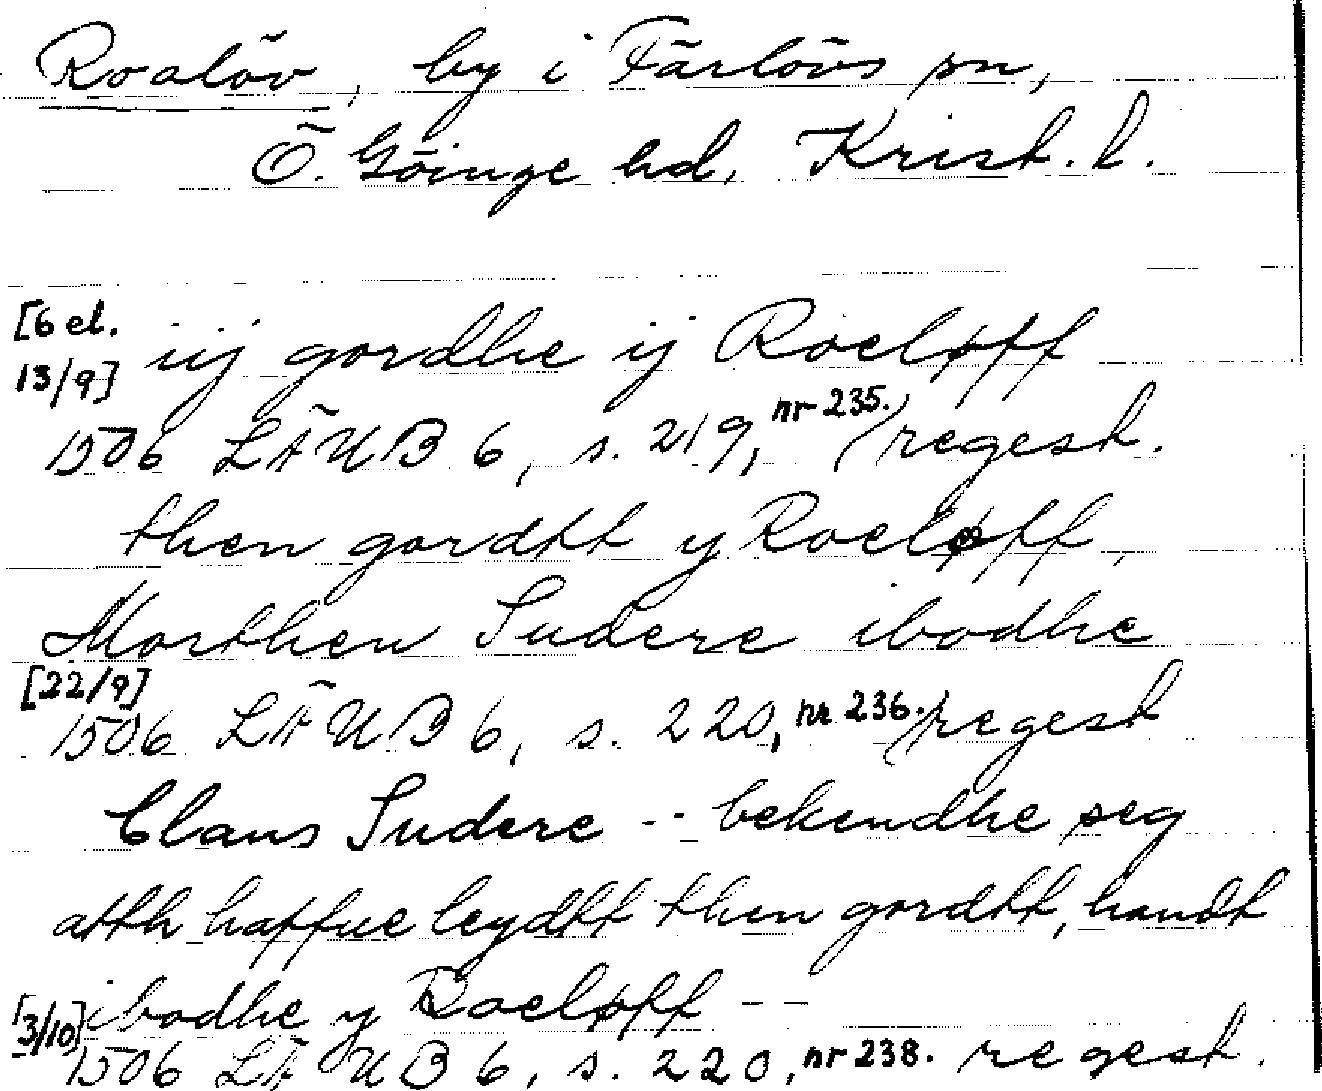 Roalöv, by i Färlövs sn,
Ö. Göinge hd. Krist. l.
[6 el.
13/9] iij gordhe ij Roeløff
1506 LÄUB 6, s. 219, nr 235. regest.
then gordtt y Roeløff,
Morthen Sudere ibodhe
[22/9]
1506 LÄUB 6, s. 220, nr 236. regest
Claus Sudere -- bekendhe seg
atth haffue leydtt then gordtt, handt
ibodhe y Roeløff --
[3/10]
1506 LÄUB 6, s. 220, nr 238. regest.